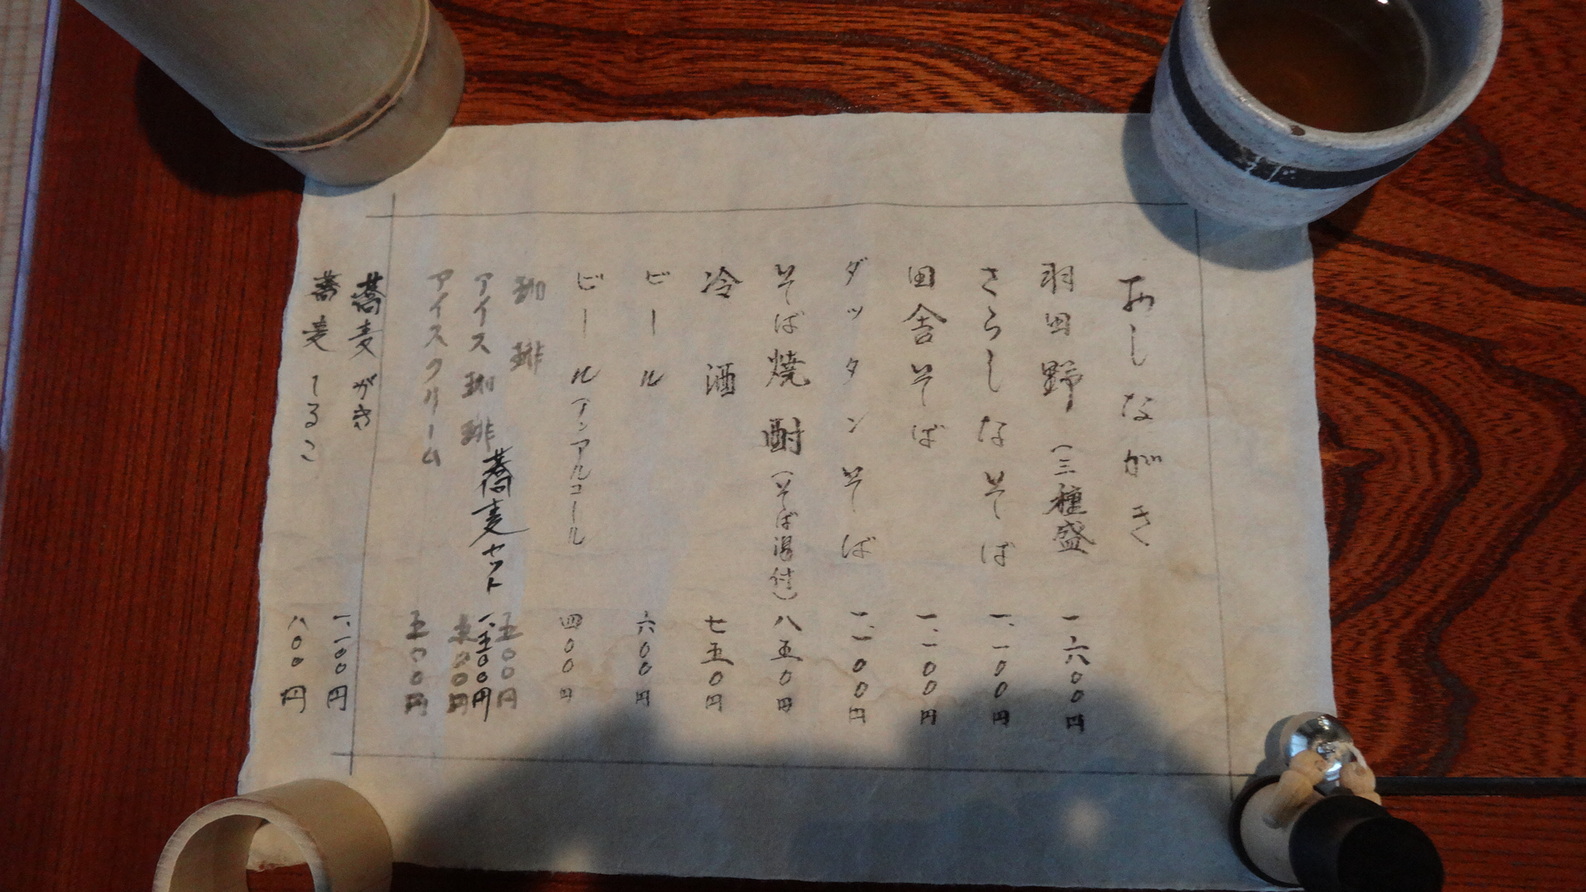 おしながき
羽田野（三種盛 一六〇〇円
さらしなそば 一、一〇〇円
田舎そば 一、一〇〇円
ダッタンそば 一、一〇〇円
そば焼酎（そば湯付） 八五〇円
冷酒 七五〇円
ビール 六〇〇円
ビール（ノンアルコール 四〇〇円
珈琲 五〇〇円
蕎麦セット 一、五〇〇円
アイス珈琲 五〇〇円
アイスクリーム 五〇〇円
蕎麦がき 一、一〇〇円
蕎麦しるこ 八〇〇円